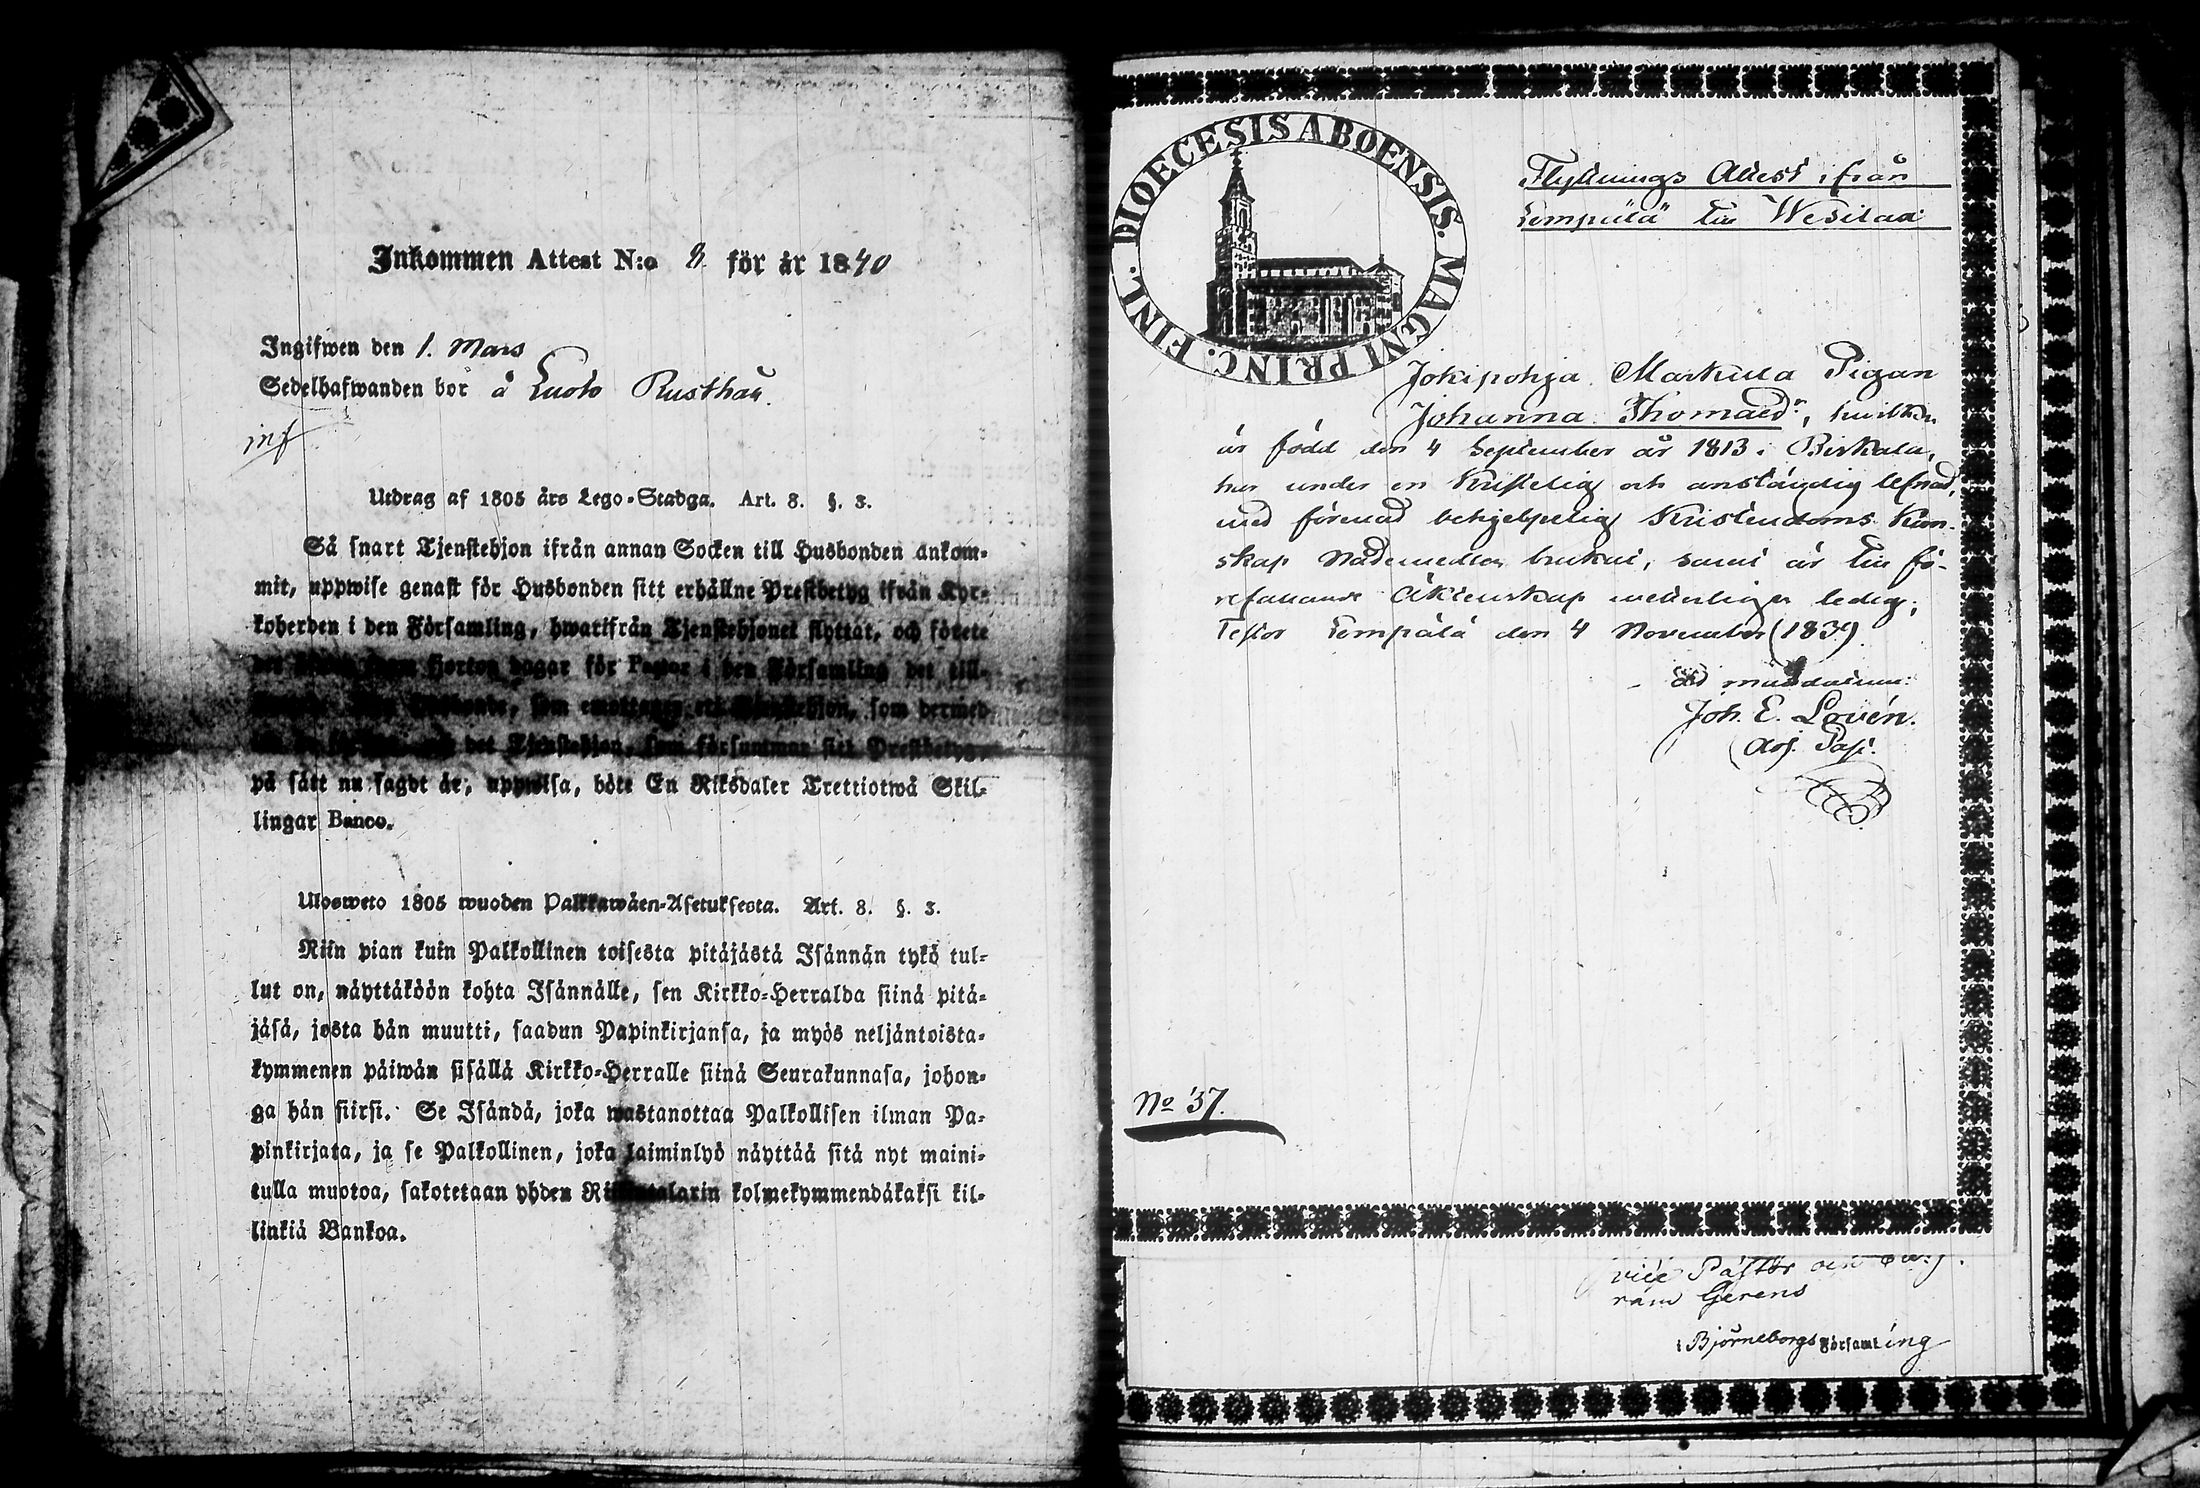 Inkommen Attest N:o 8. för år 1840
Ingifwen den 1. Mars
Sedelhafwanden bor å Luoto Rusthåll.
inf
Utdrag af 1805 års Lego-Stadga. Art. 8. §. 3.
Så snart Tjenstehjon ifrån annan Socken till Husbonden ankom-
mit, uppwise genast för Husbonden sitt erhållne Prestbetyg ifrån Kyr-
koherden i den Församling, hwarifrån Tjenstehjonet flyttat, och förete
fjorton dagar för Pastor i den Församling det till-
som emottager ett Tjenstehjon, som dermed
det Tjenstehjon, som försummar sitt Prestbetyg,
på sätt nu sagdt är, uppwisa, böte En Riksdaler Trettiotwå Skil-
lingar Banco.
Ulosweto 1805 wuoden Palkkawäen-Asetuksesta. Art. 8. §. 3.
Niin pian kuin Palkollinen toisesta pitäjästä Isännän tykö tul-
lut on, näyttäköön kohta Isännälle, sen Kirkko-Herralda siinä pitä-
jäsä, josta hän muutti, saadun Papinkirjansa, ja myös neljäntoista-
kymmenen päiwän sisällä Kirkko-Herralle siinä Seurakunnasa, johon-
ga hän siirsi. Se Isändä, joka wastanottaa Palkollisen ilman Pa-
pinkirjata, ja se Palkollinen, joka laiminlyö näyttää sitä nyt maini-
tulla muotoa, sakotetaan yhden Riksintalarin kolmekymmendäkaksi kil-
linkiä Bankoa.
DIOECESIS ABOENSIS. MAGNI PRINC. FINL.
Flyttnings Attest ifrån
Lempälä till Wesilax
Jokipohja Markula Pigan
Johanna Thomasd:r, hvilken
är född den 4 September år 1813 i Birkala,
har under en Kristelig och anständig lefnad,
med förenad behjelpelig Kristendoms Kun-
skap Nådemedlen brukat, samt är till fö-
refallande Äktenskap wederligen ledig;
Testor Lempälä den 4 November (1839)
ad mandatum:
Joh. E. Lovén.
Adj. Past.
No 37.
vice Pastor och
Gerens
i Björneborgs Församling